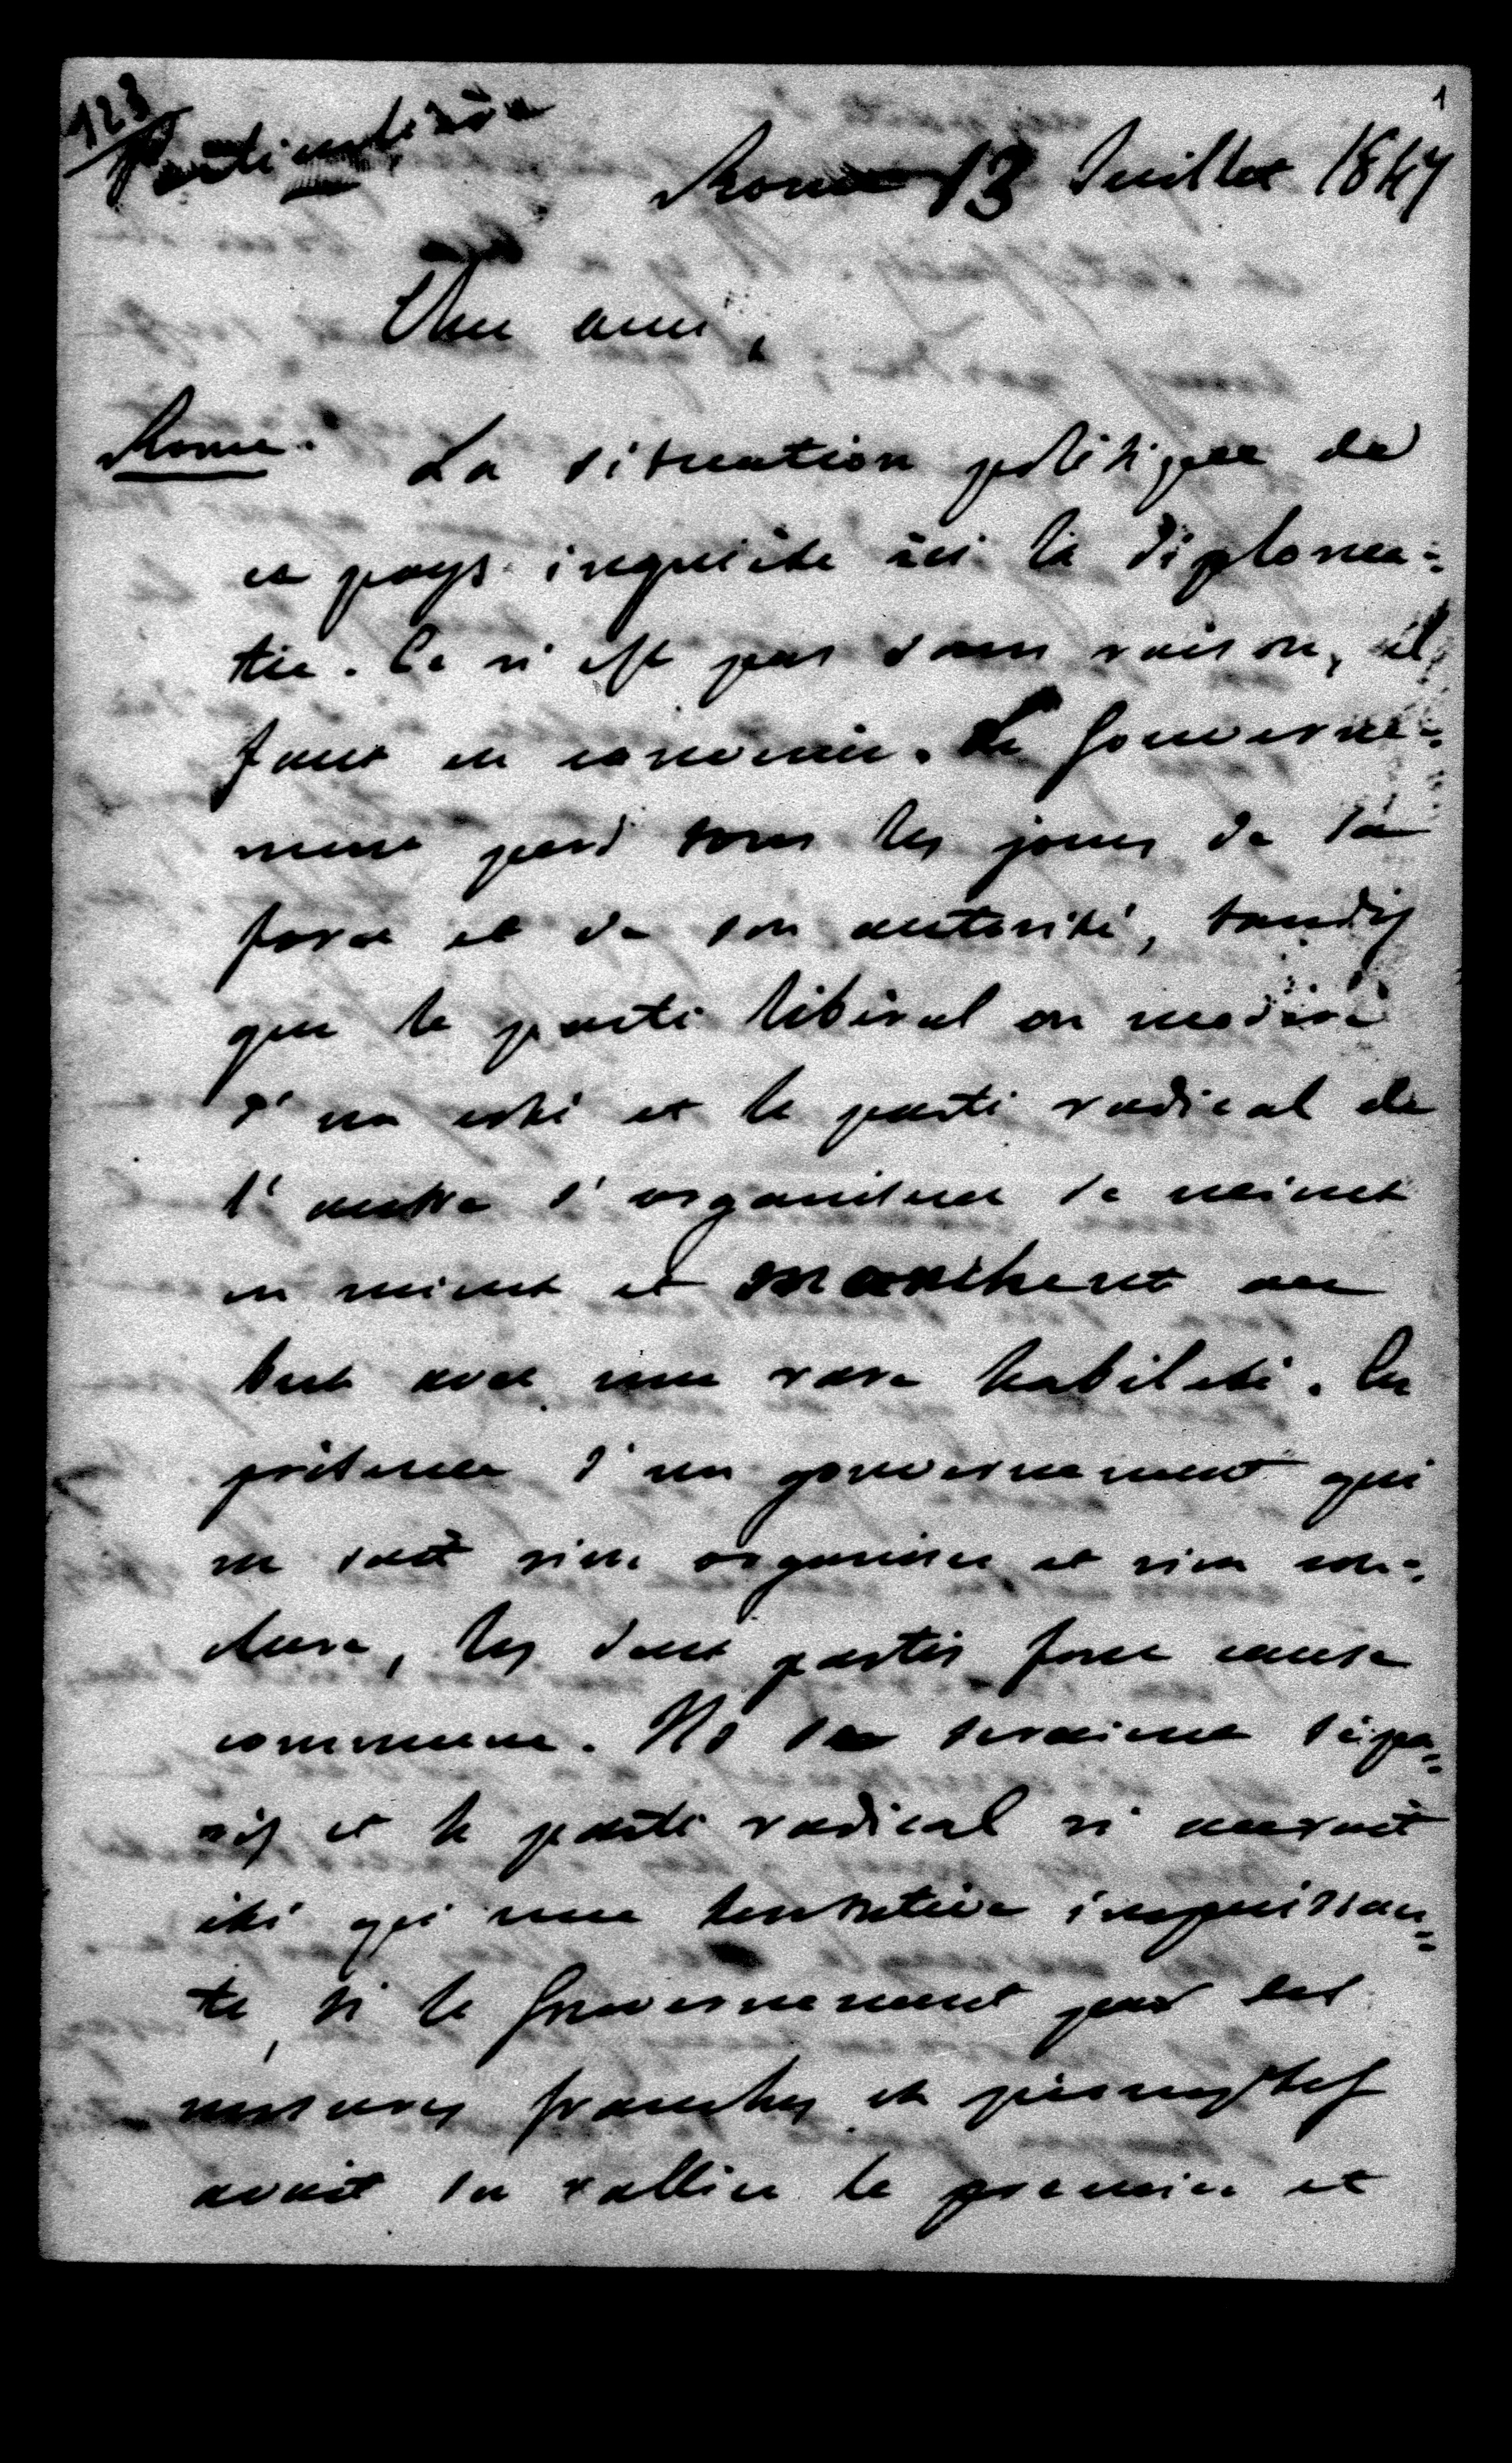 123
1
Particulière
Rome 13 Juillet 1847
Mon ami,
Rome. La situation politique de
ce pays inquiète ici la diploma=
tie. Ce n'est pas sans raison, il
faut en convenir. Le Gouverne=
ment perd tous les jours de sa
force et de son autorité, tandis
que le parti libéral ou modéré
d'un côté et le parti radical de
l'autre s'organisent de mieux
en mieux et marchent au
but avec une rare habileté. En
présence d'un gouvernement qui
ne sait rien organiser et rien con=
clure, les deux partis font cause
commune. Ils se seraient sépa=
rés et le parti radical n'aurait
été qu'une tentative impuissan=
te, si le Gouvernement par des
mesures franches et promptes
avait su rallier le premier et